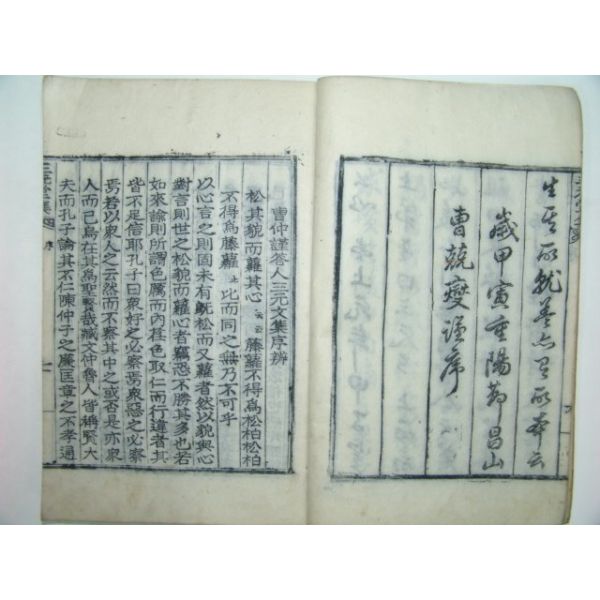 歲甲寅重陽節昌山
曺兢燮謹序
曺仲謹答人三元文集序辨
松其貌而蘿其心云云藤蘿不得爲松柏松柏
不得爲藤蘿比而同之無乃不可乎
以心言之則固未有旣松而又蘿者然以貌與心
對言則世之松貌而蘿心者竊恐不勝其多也若
如來諭則所謂色厲而內荏色取仁而行違者其
皆不足信耶孔子曰衆好之必察焉衆惡之必察
焉若以衆人之云然而不察其中之或否是亦衆
人而已烏在其爲聖賢哉臧文仲魯人皆稱賢大
夫而孔子論其不仁陳仲子之廉匡章之不孝通